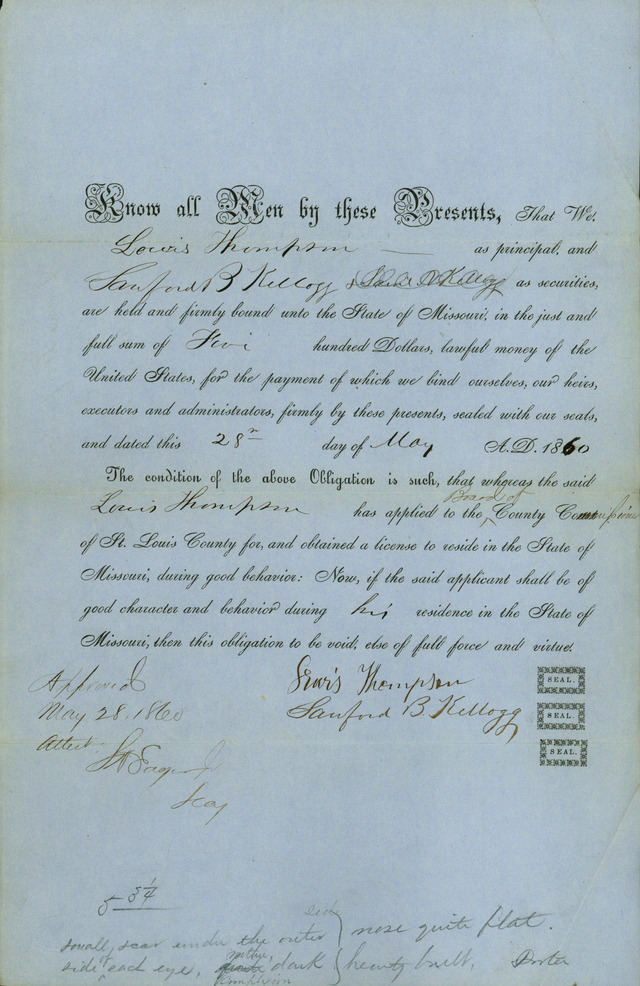 Know all Men by these Presents, That We.
Lewis Thompson — as principal, and
Sanford B Kellogg & as securities,
are held and firmly bound unto the State of Missouri, in the just and
full sum of Five hundred Dollars, lawful money of the
United States, for the payment of which we bind ourselves, our heirs,
executors and administrators, firmly by these presents, sealed with our seals,
and dated this 28th day of May A.D. 1860
The condition of the above Obligation is such, that whereas the said
Board of
Louis Thompson has applied to the County
of St. Louis County for, and obtained a license to reside in the State of
Missouri, during good behavior: Now, if the said applicant shall be of
good character and behavior during his residence in the State of
Missouri, then this obligation to be void, else of full force and virtue.
Approved Lewis Thompson SEAL.
May 28. 1860 Sanford B. Kellogg SEAL.
Attest. SEAL.
5 3/4
small scar under the outer nose quite flat.
side of each eye, rather dark heavy built,
complexion